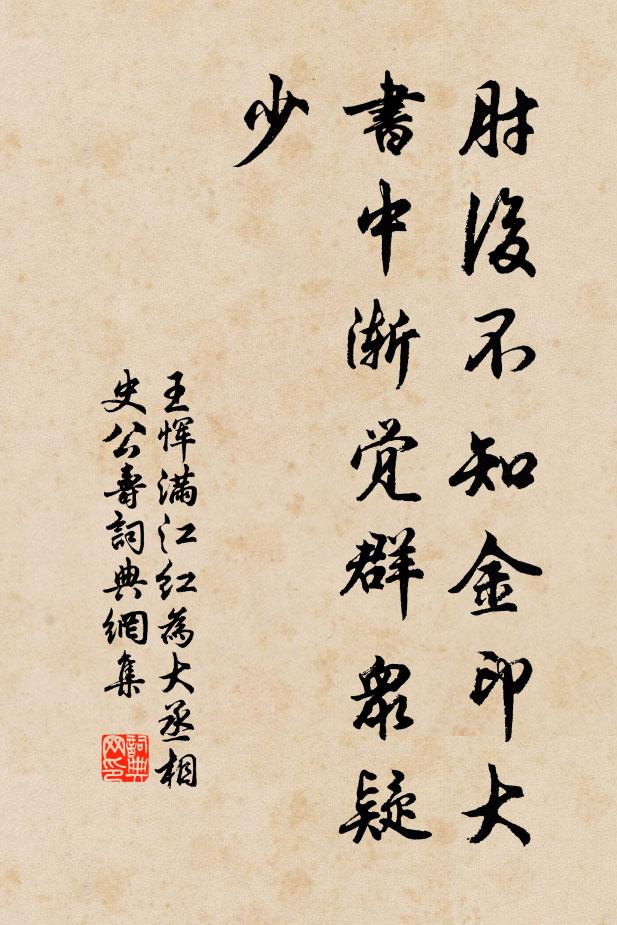 肘後不知金印大
書中漸覺群眾疑
少
王惲滿江红為大丞相
史公壽詞典網集
詞典
网印